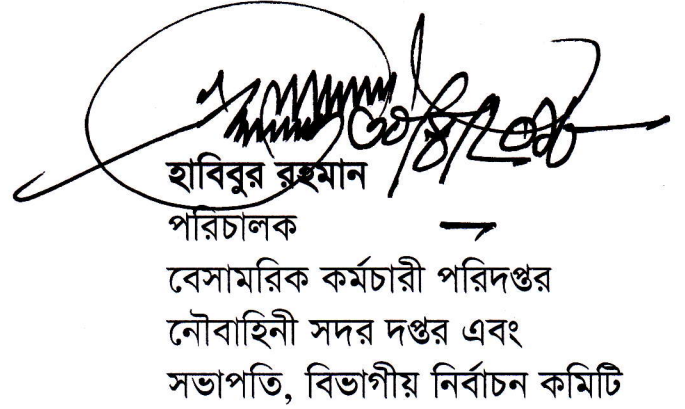 হাবিবুর রহমান
পরিচালক
বেসামরিক কর্মচারী পরিদপ্তর
নৌবাহিনী সদর দপ্তর এবং
সভাপতি, বিভাগীয় নির্বাচন কমিটি